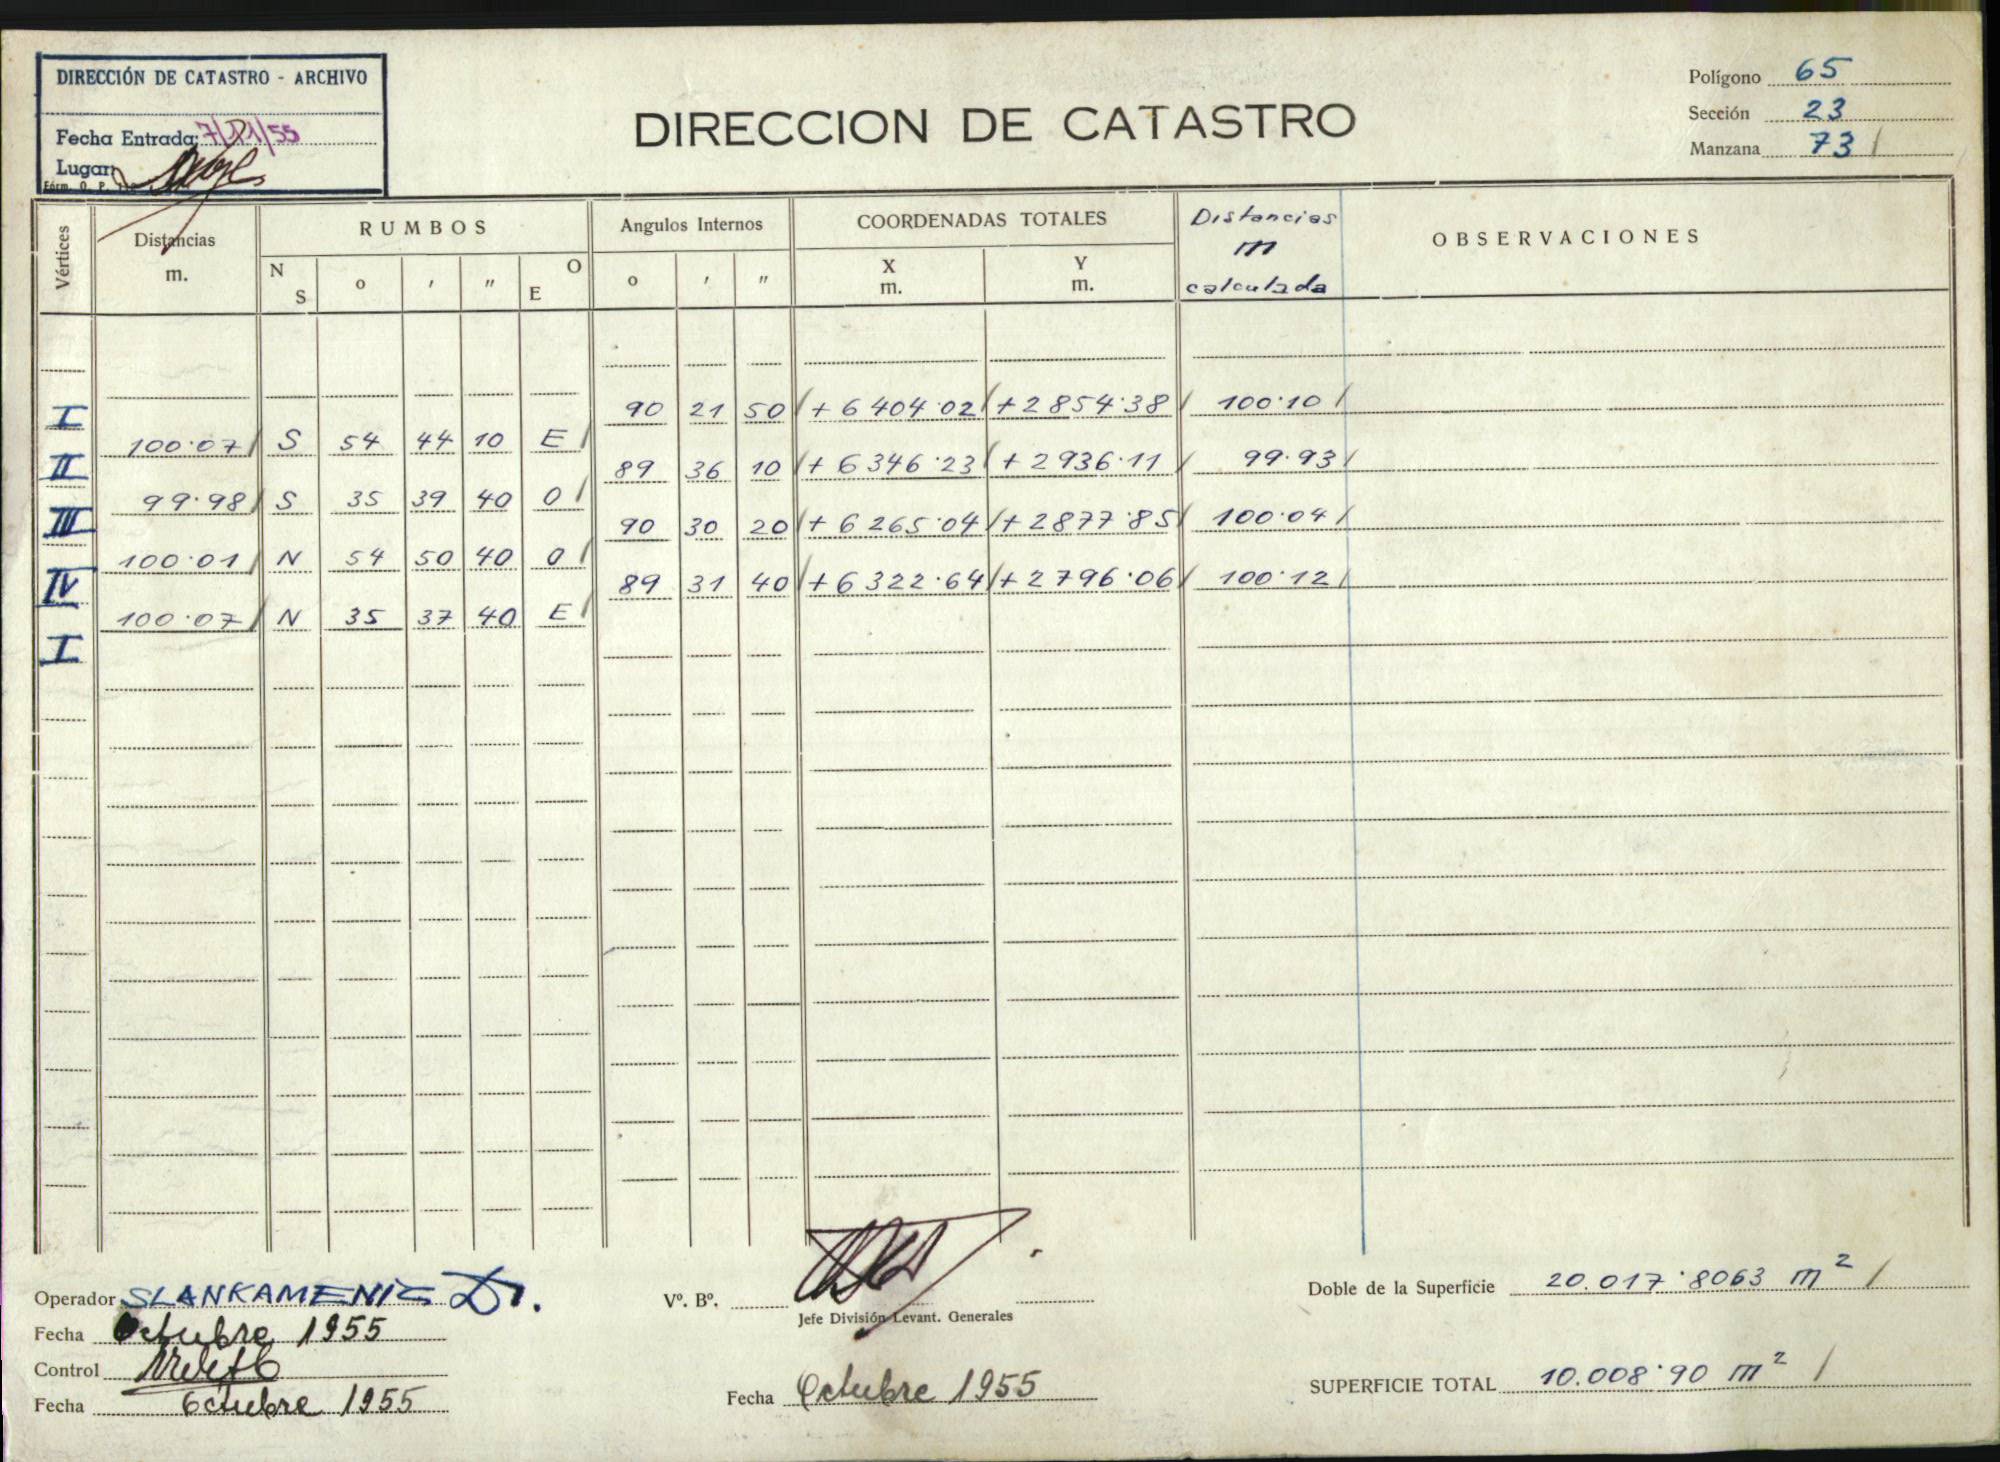 DIRECCIÓN DE CATASTRO - ARCHIVO
Fecha Entrada: 7/ /55
Lugar
Fórm. O. P.
DIRECCION DE CATASTRO
Polígono 65
Sección 23
Manzana 73 /
Vértices Distancias m. RUMBOS Angulos Internos COORDENADAS TOTALES Distancias m calculada OBSERVACIONES
N S o ' " O E o ' " X m. Y m.
I 90 21 50 / + 6 404·02 / + 2 854·38 / 100·10 /
100·07 / S 54 44 10 E /
II 89 36 10 / + 6 346·23 / + 2 936·11 / 99·93 /
99·98 / S 35 39 40 O /
III 90 30 20 / + 6 265·04 / + 2 877·85 / 100·04 /
100·01 / N 54 50 40 O /
IV 89 31 40 / + 6 322·64 / + 2 796·06 / 100·12 /
100·07 / N 35 37 40 E /
I
Operador SLANKAMENIĆ
Fecha Octubre 1955
Control
Fecha Octubre 1955
Vº. Bº.
Jefe División Levant. Generales
Fecha Octubre 1955
Doble de la Superficie 20.017·8063 m² /
SUPERFICIE TOTAL 10.008·90 m² /